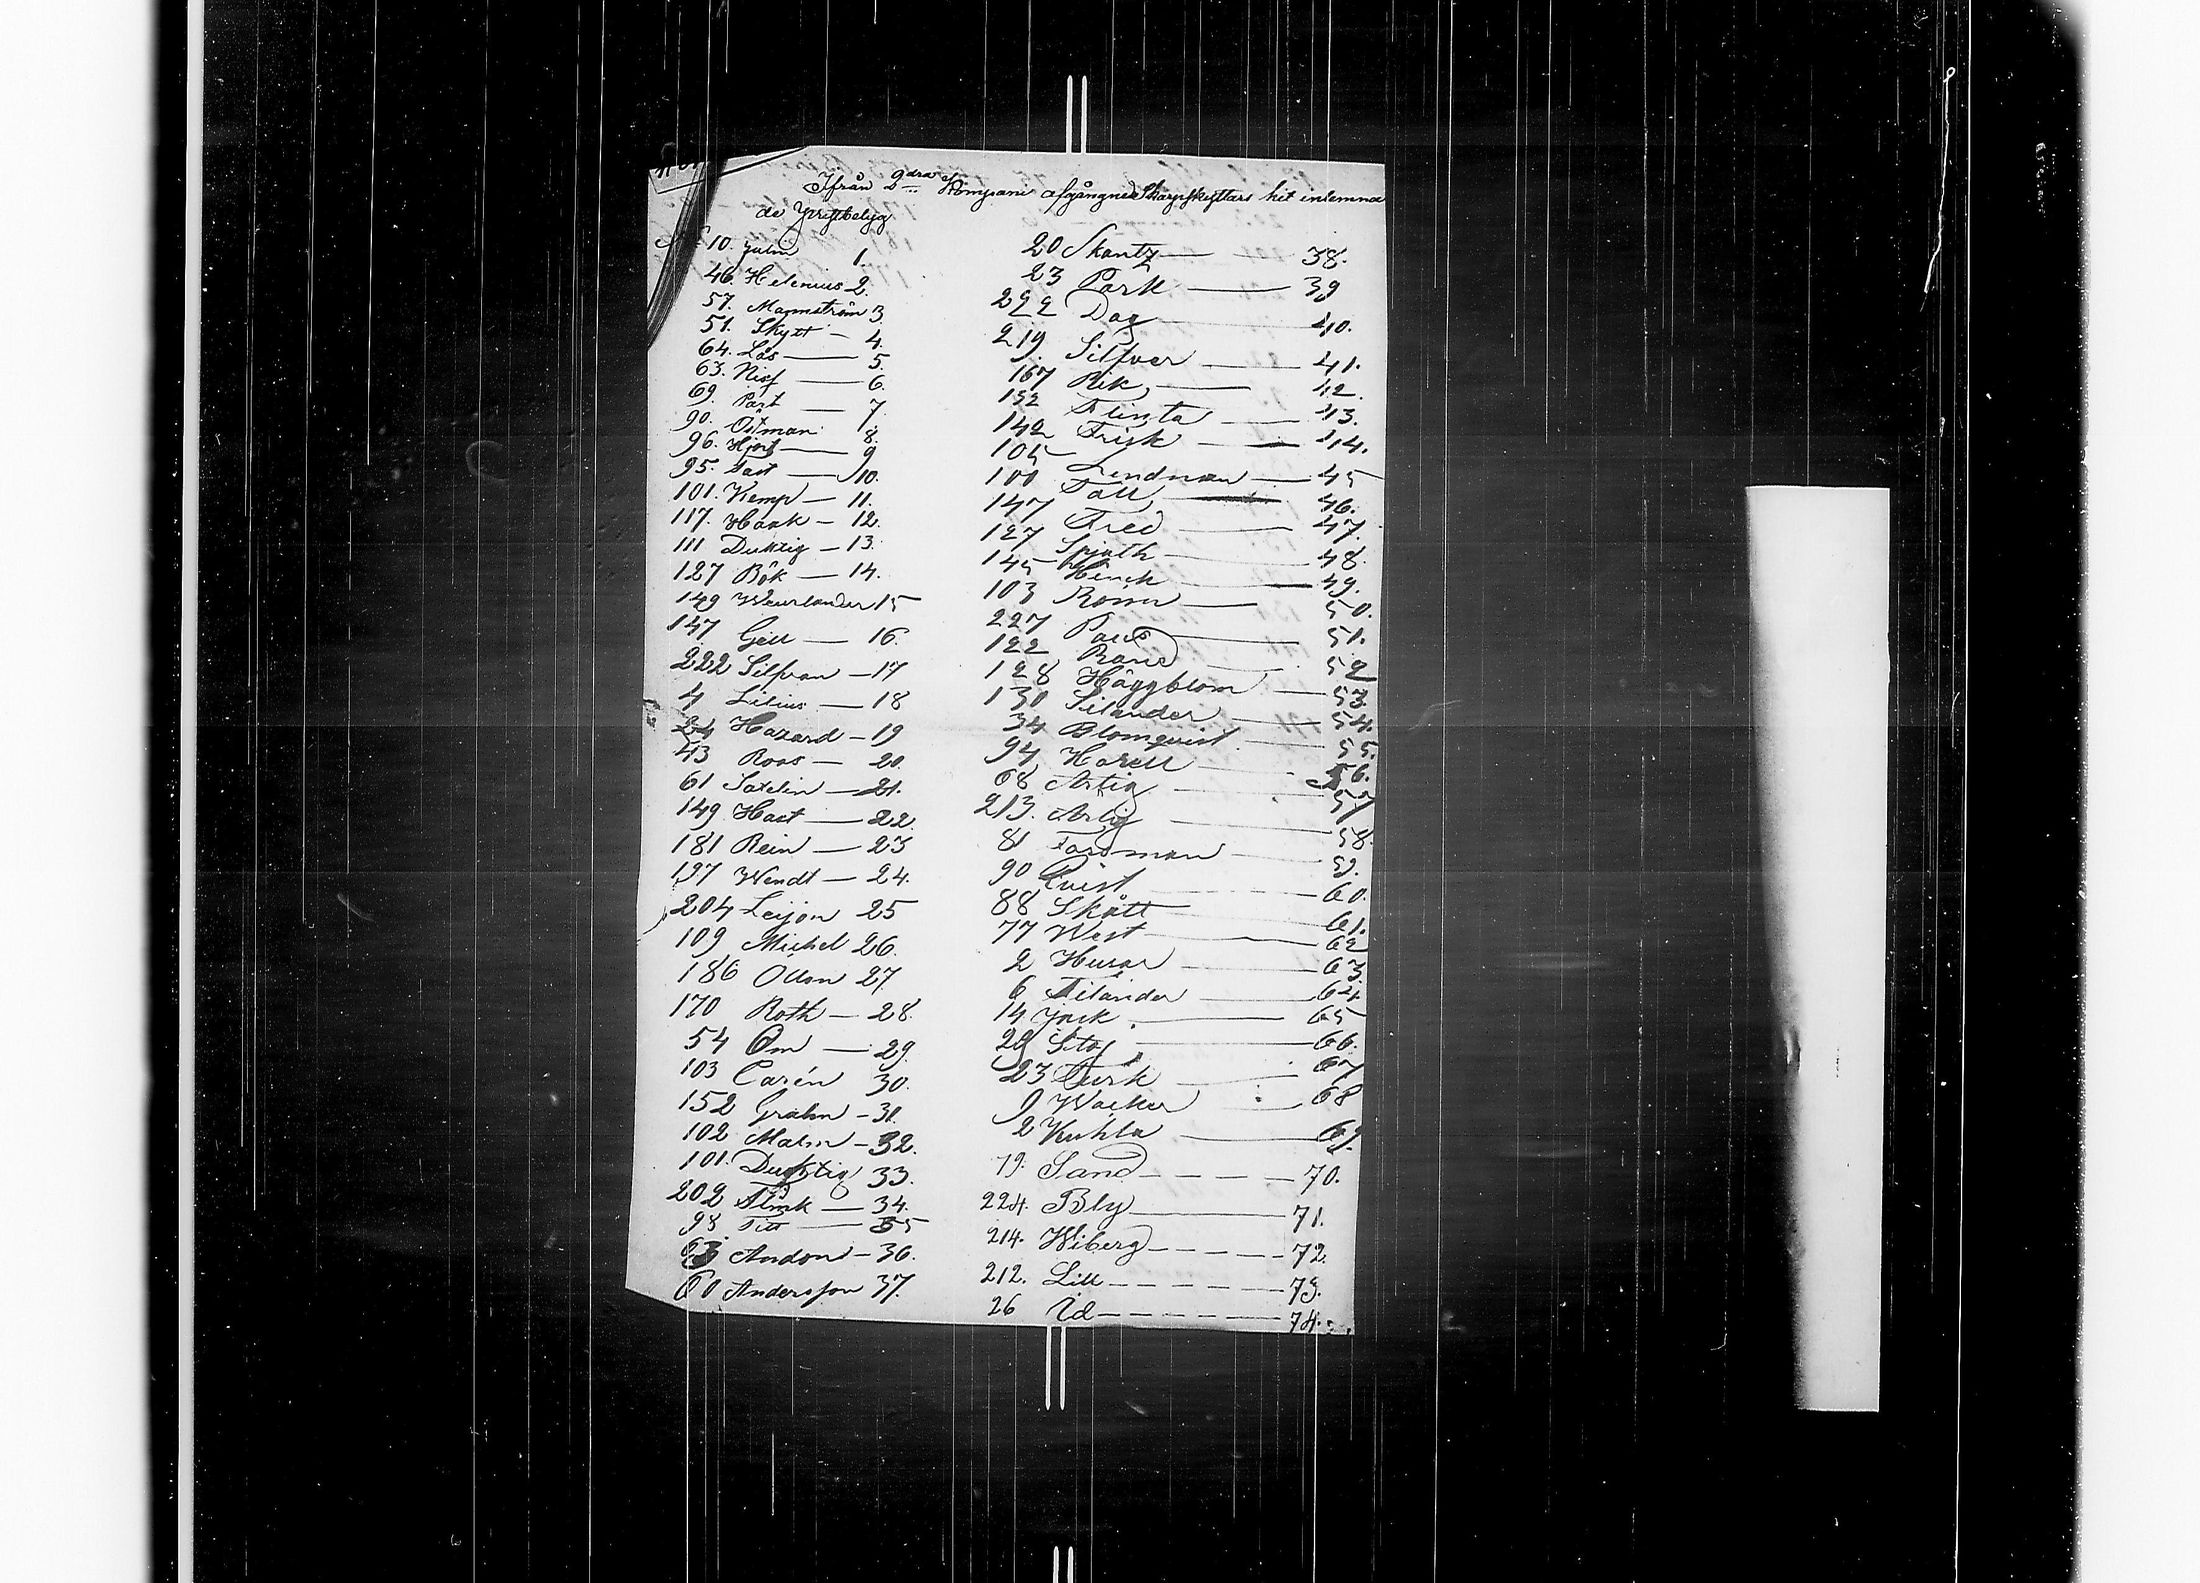 Ifrån 2dra Kompanie afgångne Skarpskyttars hit inlemna
de
No 10. Julin 1.
46. Helenius 2.
57. Malmström 3
51. Skytt - 4.
64. Lås - 5.
63. 6.
69. Pärt - 7.
90. Östman 8.
96. Hjort - 9
95. Fast - 10.
101. Kemp - 11.
117. Haak - 12.
111 Duktig - 13.
127 Bök - 14.
149 Weurlander 15
147 Gell - 16.
222 Silfvan - 17
4 Lilius - 18
24 Hazard - 19
43 Roos - 20.
61 Saxelin - 21.
149 Hast - 22.
181 Rein - 23
197 Wendt - 24.
204 Leijon 25
109 Michel 26.
186 Ollon 27
170 Roth - 28.
54 Öm - 29.
103 Carén 30.
152 Grahn - 31.
102 Malm - 32.
101. Ducktig 33.
202 Flink - 34.
98 Titt - 35
63 Andon - 36.
60 Andersson 37.
20 Skantz - 38.
23 Park - 39
222 Dag 40.
219. Silfver - 41.
167 Rik, - 42.
152 Flinta - 43.
142 Frisk - 44.
105 Lindman - 45
100 Fall - 46.
147 Fred - 47.
127 Spjuth - 48.
145 - 49.
103 Rosin - 50.
227 Paus - 51.
122 Rand 52
128 Häggblom - 53.
130 Silander - 54.
34 Blomqvist - 55.
94 Harell - 56.
68 Artig - 57
213. Arlig - 58.
81 Fordman - 59.
90 Qvist - 60.
88 Skått - 61.
77 West - 62
2 Husar - 63.
6 Tilander - 64.
14 Jack - 65
29 - 66.
23 Turk - 67
9 Wacker - 68
2 Kuhla - 69.
79. Sand - - - - 70.
224. Bly - 71.
214. Wiberg - - - - 72.
212. Lill - - - - 73.
26 Id - - - - 74.